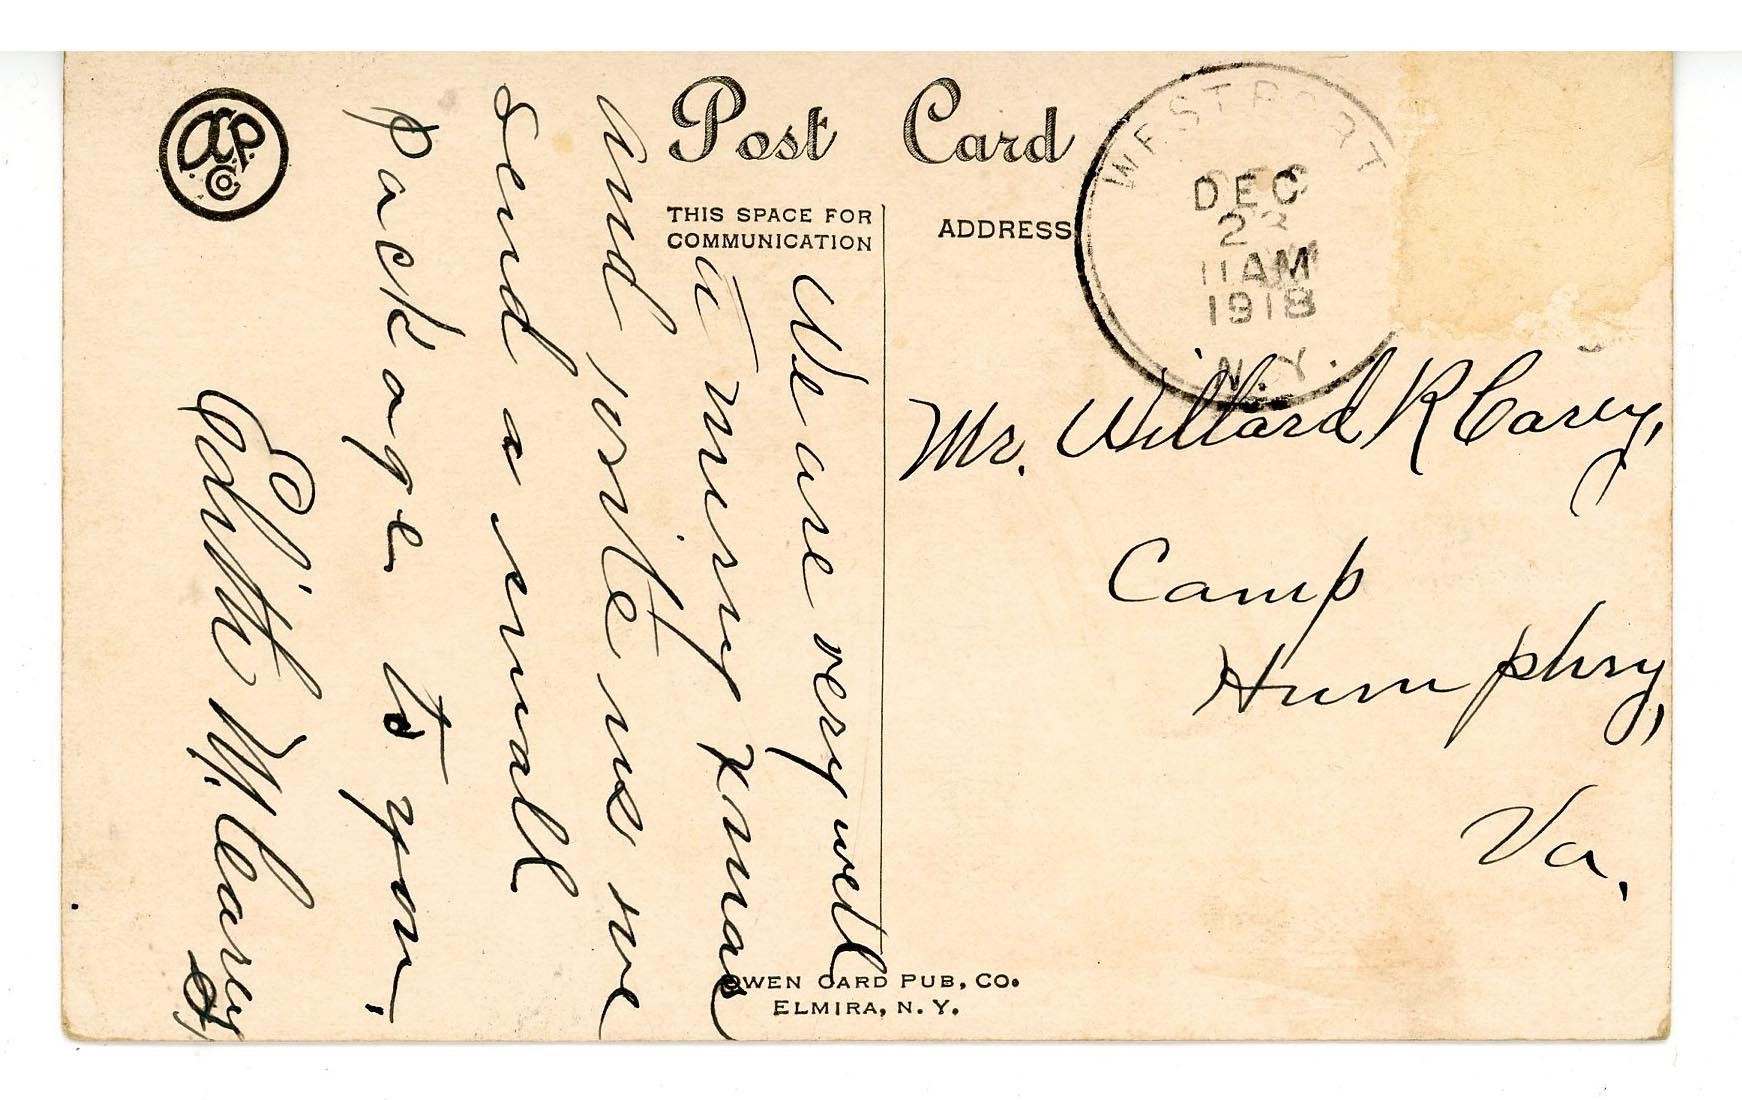 Post Card
THIS SPACE FOR
COMMUNICATION
ADDRESS
WESTPORT
DEC
23
11 AM
1918
N.Y.
Mr. Willard R Carey,
Camp
Humphry,
Va.
We are very well
a mersy xmas
and write us we
send a small
package to you.
Edith M. Carey
OWEN CARD PUB, CO.
ELMIRA, N. Y.